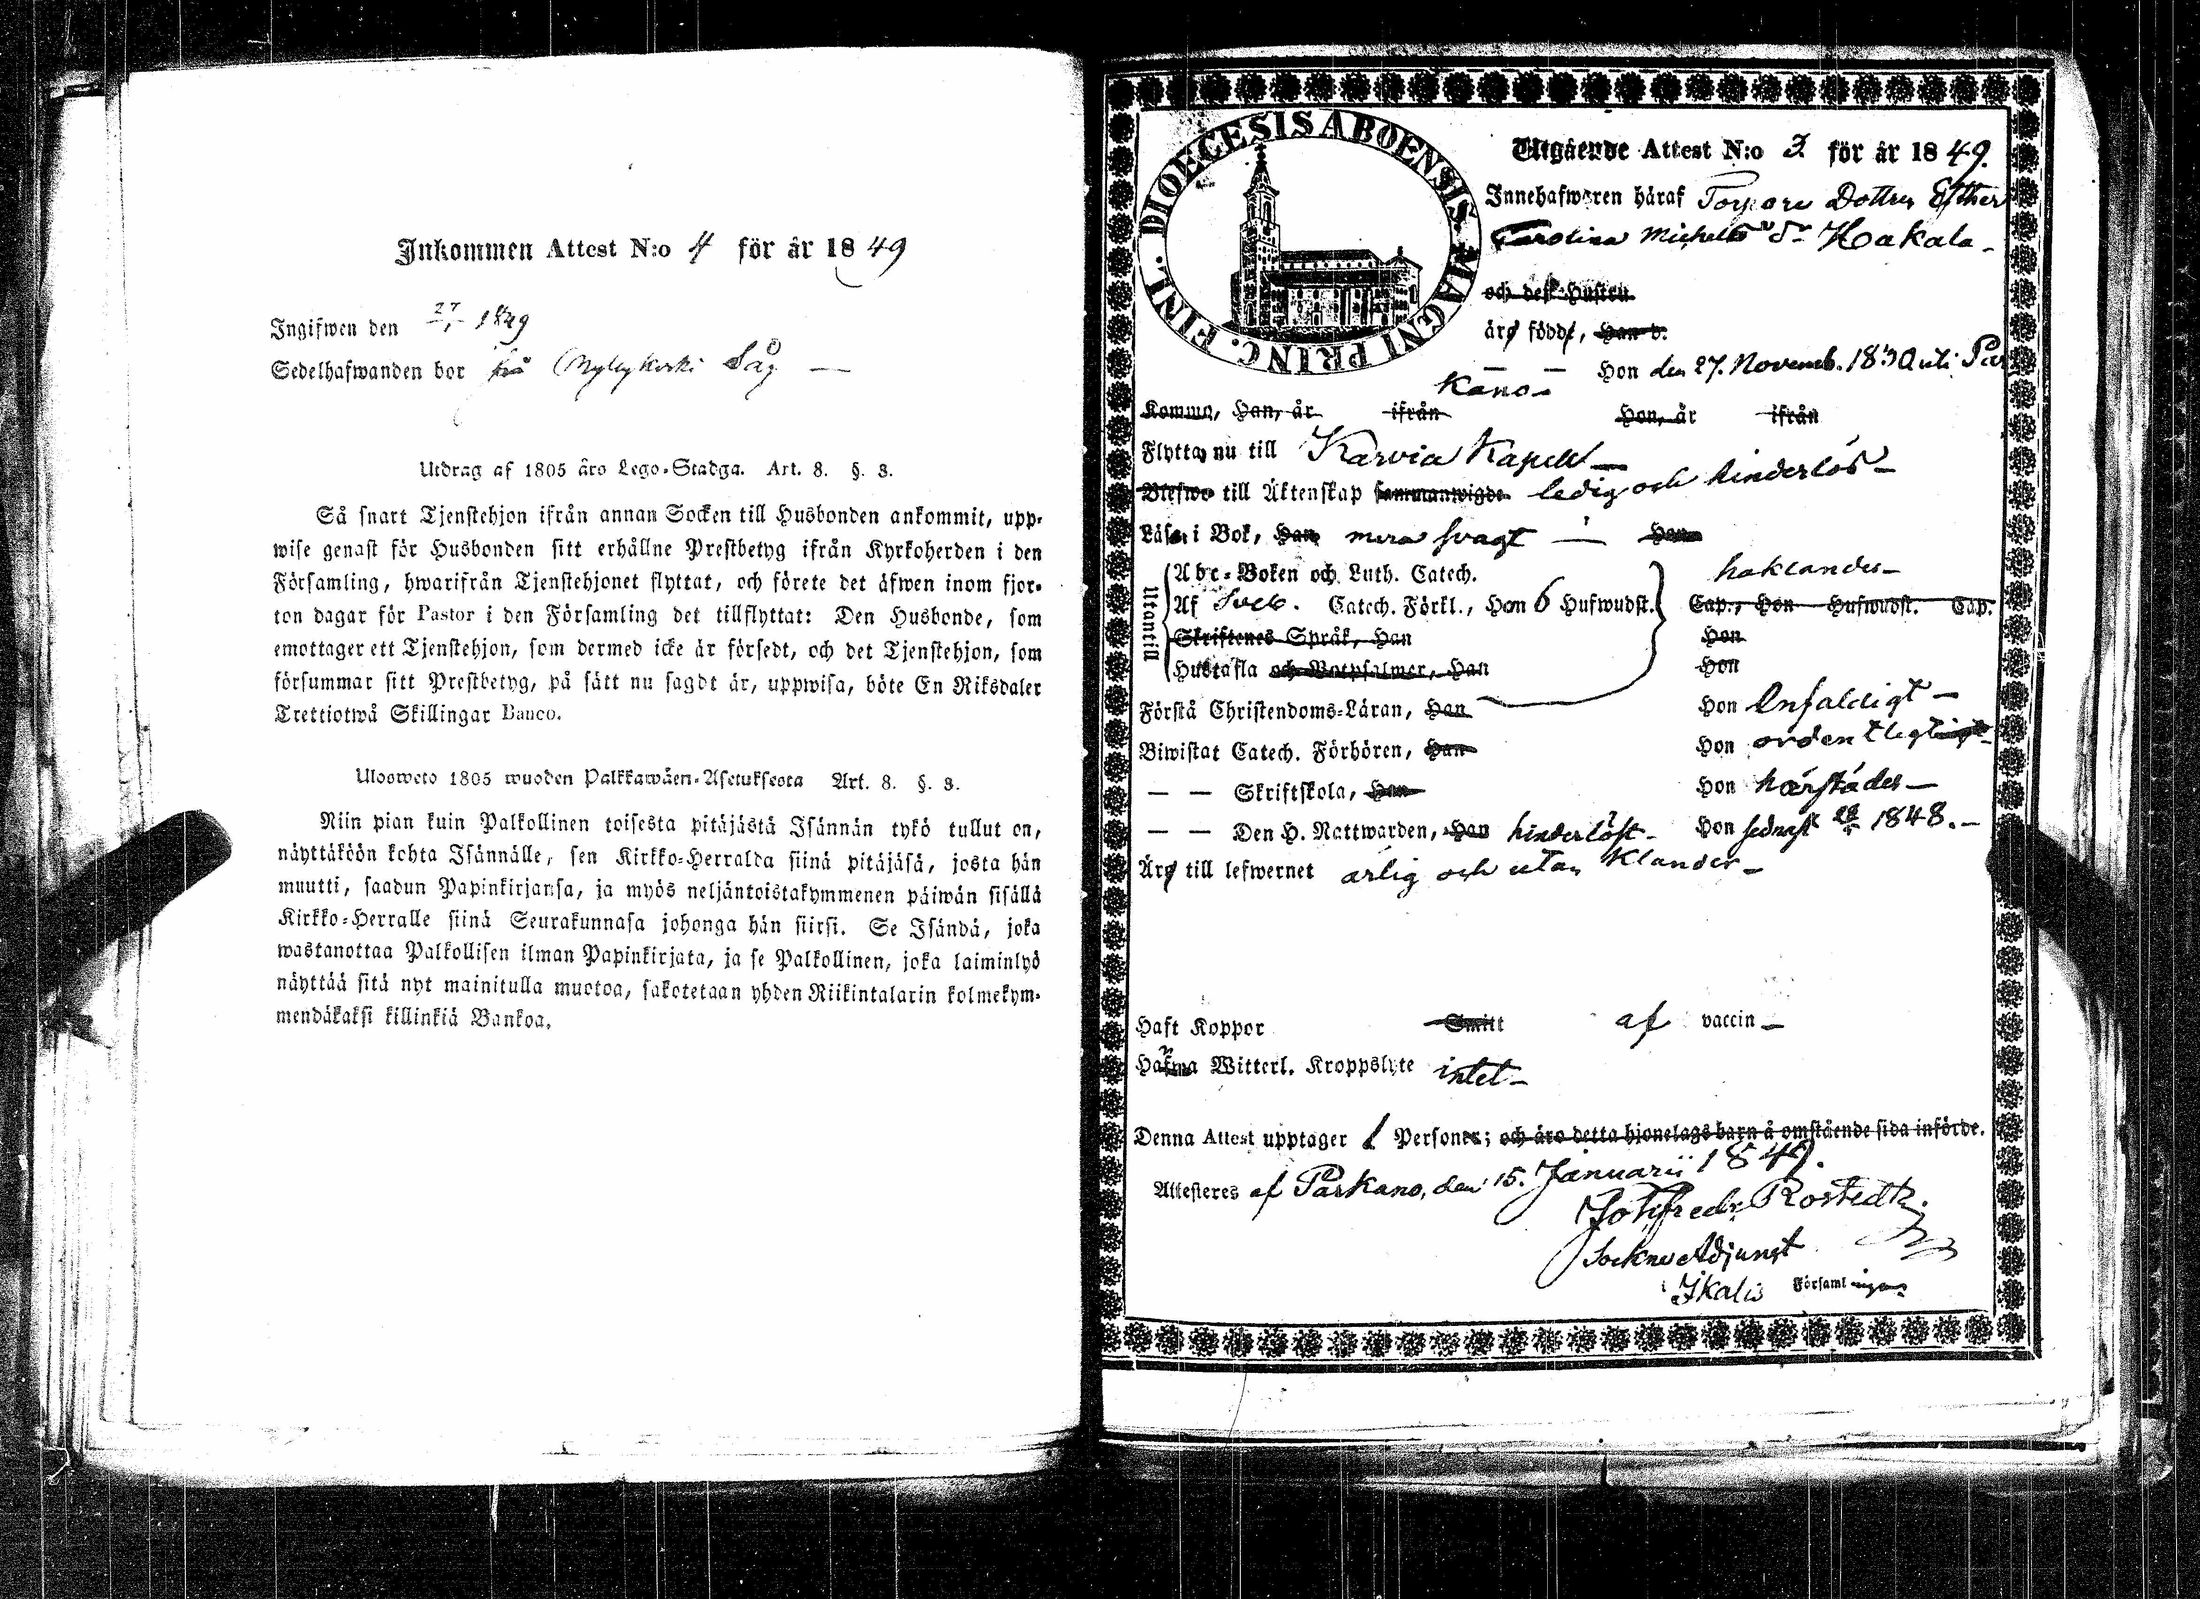 Inkommen Attest N:o 4 för år 1849
Ingifwen den 27/1 1849
Sedelhafwanden bor på Nylykoski Såg —
Utdrag af 1805 års Lego-Stadga. Art. 8. §. 3.
Så snart Tjenstehjon ifrån annan Socken till Husbonden ankommit, upp-
wise genast för Husbonden sitt erhållne Prestbetyg ifrån Kyrkoherden i den
Församling, hwarifrån Tjenstehjonet flyttat, och förete det äfwen inom fjor-
ton dagar för Pastor i den Församling det tillflyttat: Den Husbonde, som
emottager ett Tjenstehjon, som dermed icke är försedt, och det Tjenstehjon, som
försummar sitt Prestbetyg, på sätt nu sagdt är, uppwisa, böte En Riksdaler
Trettiotwå Skillingar Banco.
Ulosweto 1805 wuoden Palkkawäen-Asetuksesta Art. 8. §. 3.
Niin pian kuin Palkollinen toisesta pitäjästä Isännän tykö tullut on,
näyttäköön kohta Isännälle, sen Kirkko-Herralda siinä pitäjäsä, josta hän
muutti, saadun Papinkirjansa, ja myös neljäntoistakymmenen päiwän sisällä
Kirkko-Herralle siinä Seurakunnasa johonga hän siirsi. Se Isändä, joka
wastanottaa Palkollisen ilman Papinkirjata, ja se Palkollinen, joka laiminlyö
näyttää sitä nyt mainitulla muotoa, sakotetaan yhden Riikintalarin kolmekym-
mendäkaksi killinkiä Bankoa.
DIOECESIS ABOENSIS. MAGNI PRINC. FINL.
Utgående Attest N:o 3 för år 1849.
Innehafwaren häraf Torpare Dottren Esther
Carolina Michels dr Hakala —
och desk Hustru
äro födde, Han d.
Hon den 27. Novemb. 1830 uti Par
kano —
Komne, Han, år ifrån Hon, år ifrån
Flytta nu till Karvia Kapell —
Blefwo till Äktenskap sammanwigde ledig och hinderlös —
Läsa i Bok, Han mera svagt — Hon
Utantill
Abc-Boken och Luth. Catech. haklandes —
Af Sveb. Catech. Förkl., Hon 6 Hufwudst. Cap., Hon Hufwudst. Cap.
Skriftenes Språk, Han Hon
Hustafla och Botpsalmer, Han Hon
Förstå Christendoms-Läran, Han Hon Enfaldigt —
Biwistat Catech. Förhören, Han Hon ordentligt
— — Skriftskola, Han Hon härstädes —
— — Den H. Nattwarden, Han hinderlöst — Hon sednast 1848. —
Äro till lefwernet ärlig och utan Klander —
Haft Koppor Smitt af vaccin —
Hafwa Witterl. Kroppslyte intet —
Denna Attest upptager 1 Personer; och äro detta hjonelags barn å omstående sida införde.
Attesteres af Parkano, den 15. Januarii 1849.
Jotifredr Rostedt
Sockne Adjunct
Ikalis Församlingen